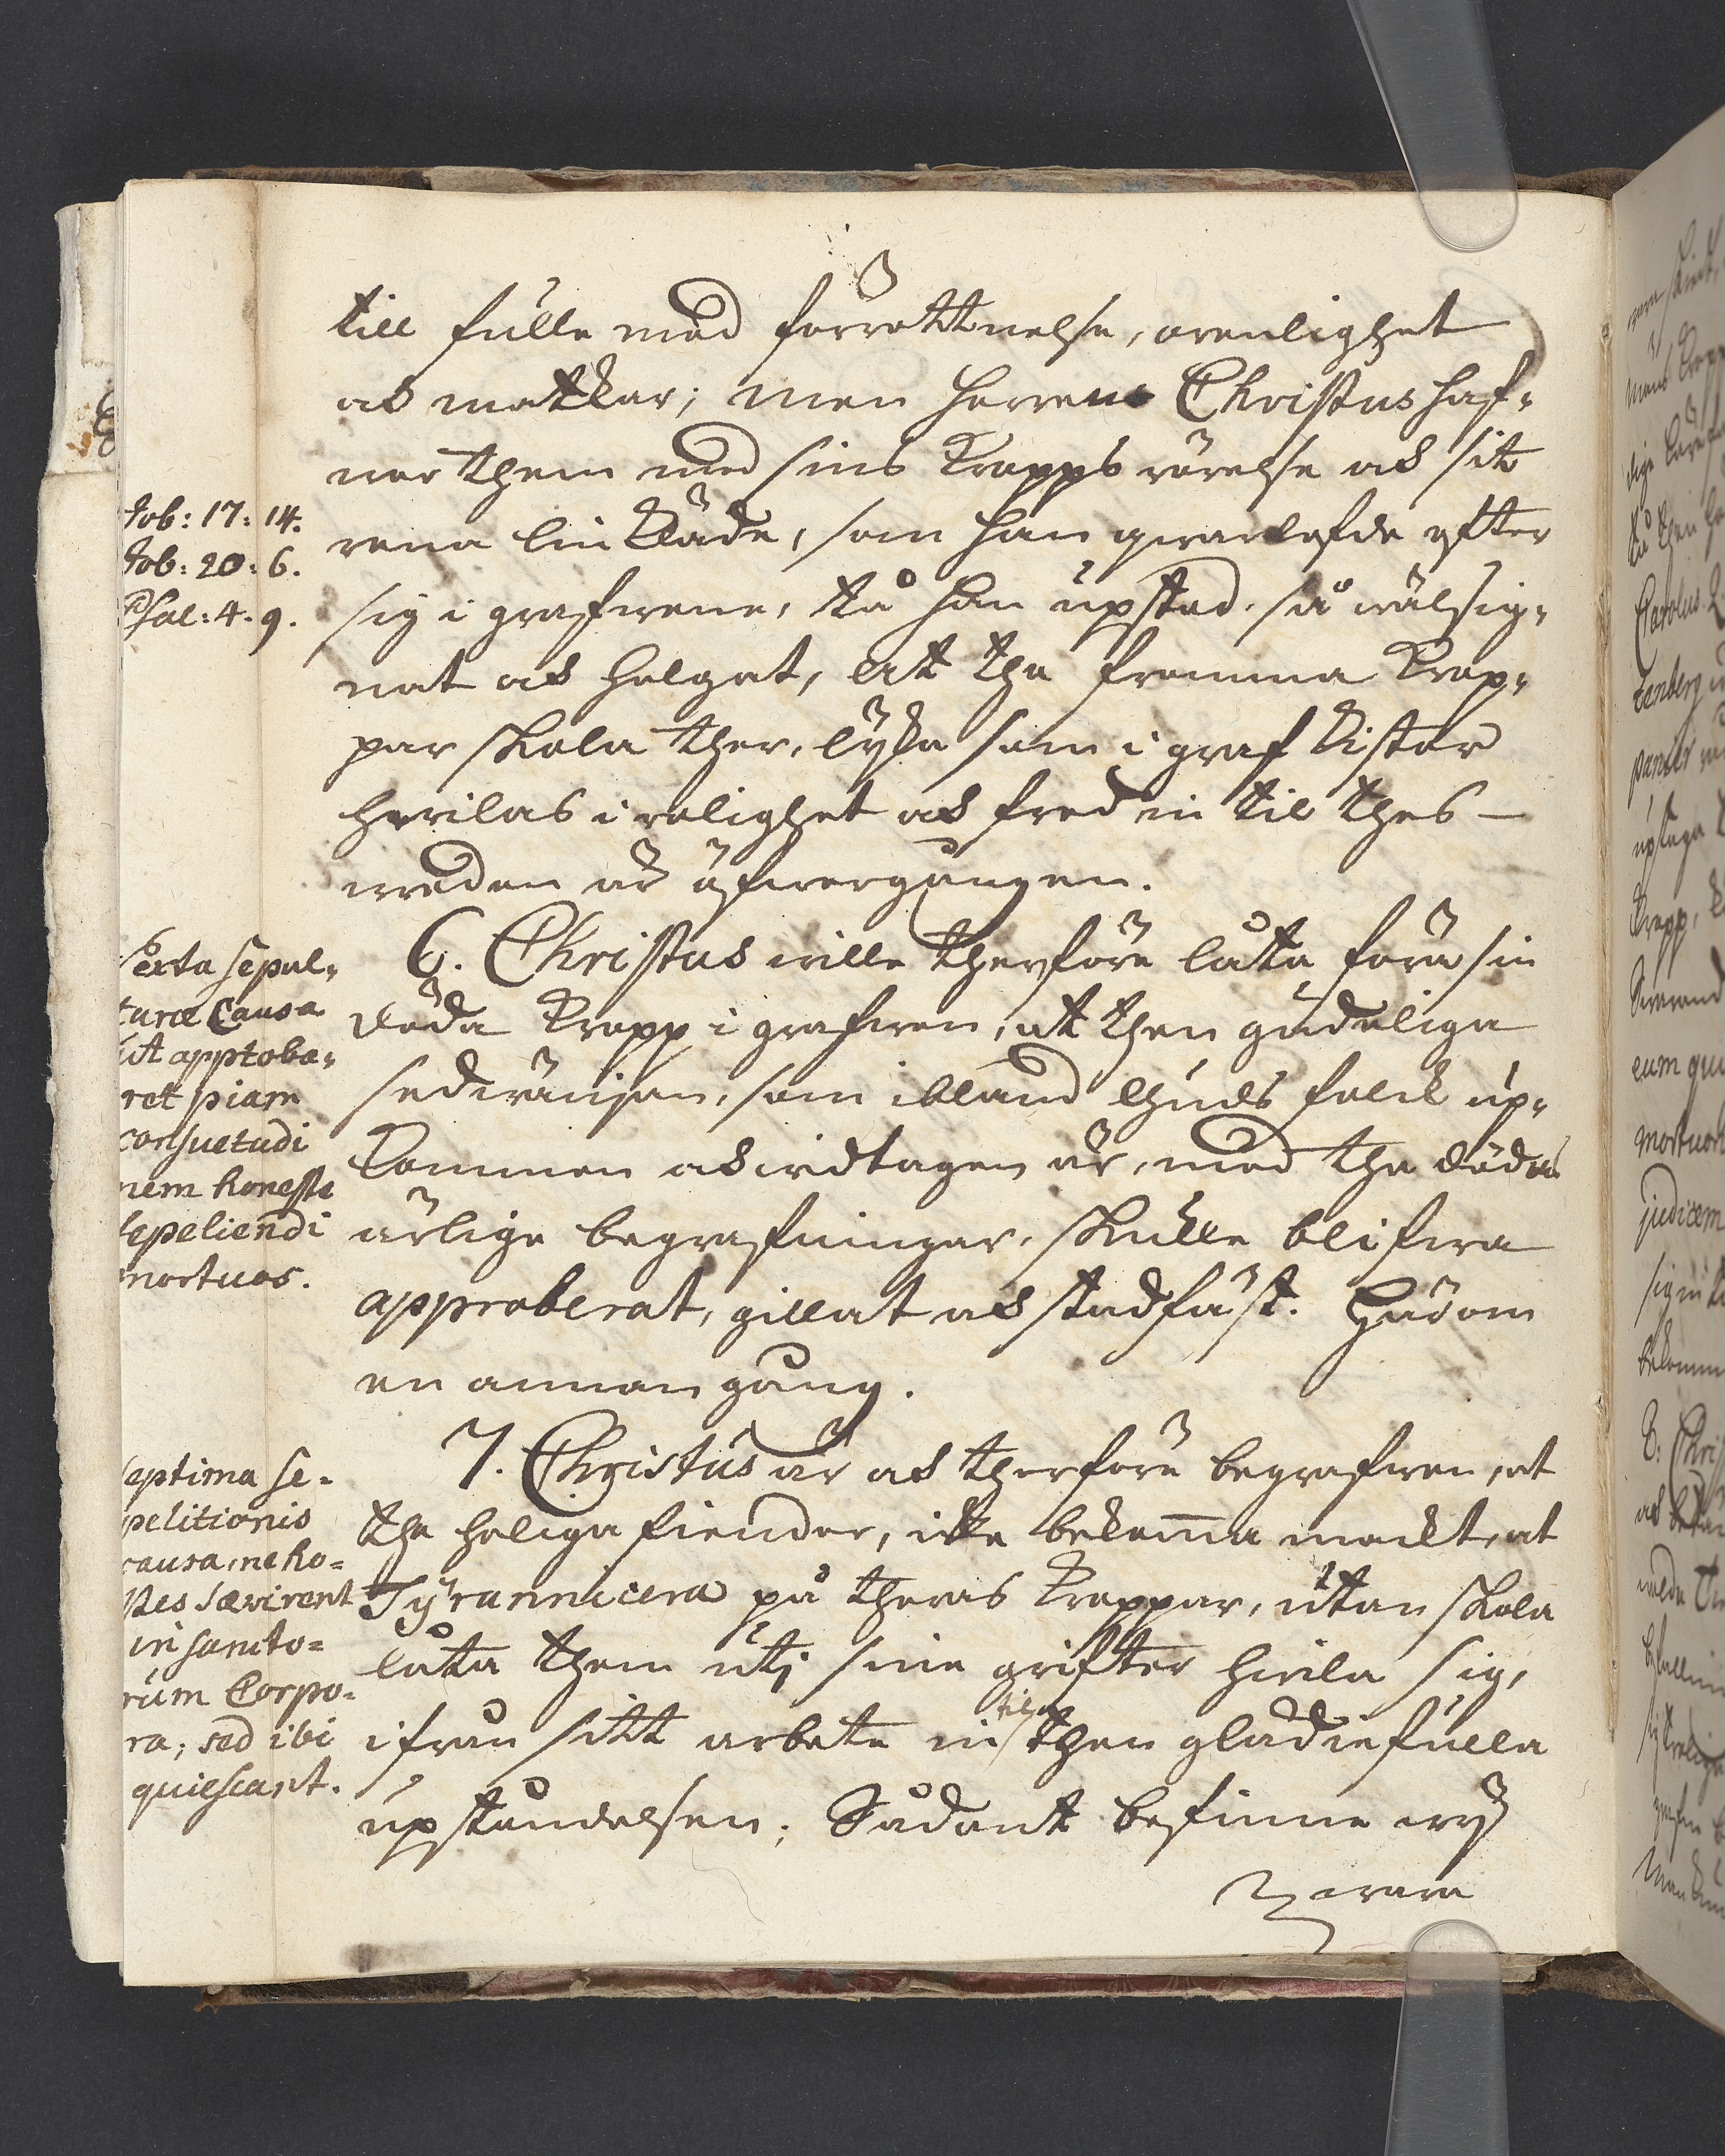 till fulle med förrottnelse, orenlighet
och matkar; men Herren Christus haf-
ver them med sins kropps rörelse och sit
rena lin kläde, som han qvarlefde efter
sig i grafvenne, tå han upstod, så välsig-
nat och helgat, at the fromma krop-
par skola ther, lyka som i graf kistor
hvilas i rolighet och fred in til thes
vreden är öfvergången.
6. Christus ville therföre låta föra sin
döda kropp i grafven, at then gudeliga
sedvänjan, som ibland Guds folck up-
kommen och vidtagen är, med the dödas
ärlige begrafningar, skulle blifva
approberat, gillat och stadfäst. Härom
en annan gång.
7. Christus är och therföre begrafven, at
the heliga fiender, icke bekom̅a mackt, at
Tyrannicera på theras kroppar, utan skola
låta them uti sine grifter hvila sig,
ifrån sitt arbete in til then glädiefulla
upståndelsen; Sådant befinne vy
vara
Job: 17: 14.
Job: 20: 6.
Psal: 4. 9.
Sexta sepul-
turæ Causa
ut approba-
ret piam
consuetudi
nem honeste
sepeliendi
mortuos.
septima se-
pelitionis
causa, ne ho-
stes sævirent
in sancto-
rum Corpo-
ra; sed ibi
quiescant.